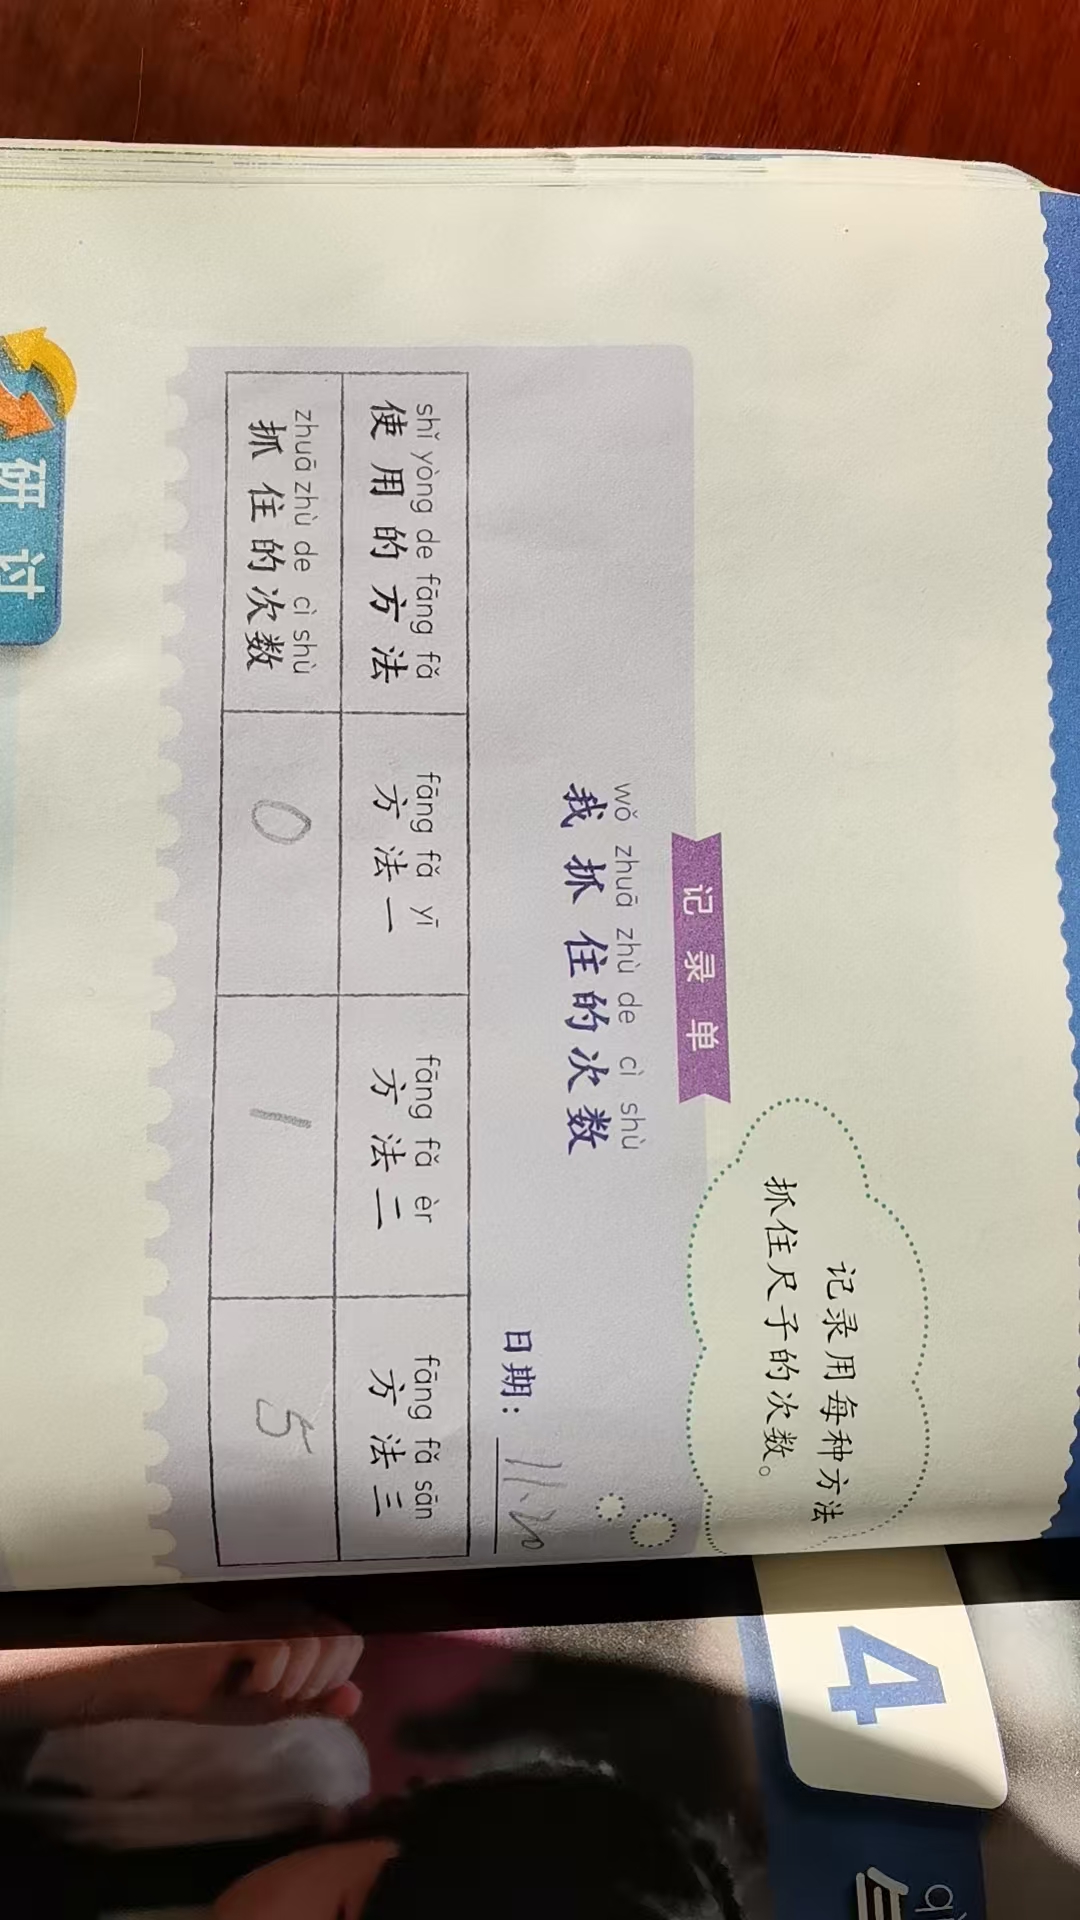 记录用每种方法
抓住尺子的次数。
记录单
wǒ zhuā zhù de cì shù
我抓住的次数
日期：11.20
shǐ yòng de fāng fǎ fāng fǎ yī fāng fǎ èr fāng fǎ sān
使用的方法 方法一 方法二 方法三
zhuā zhù de cì shù
抓住的次数 0 1 5
研讨
4